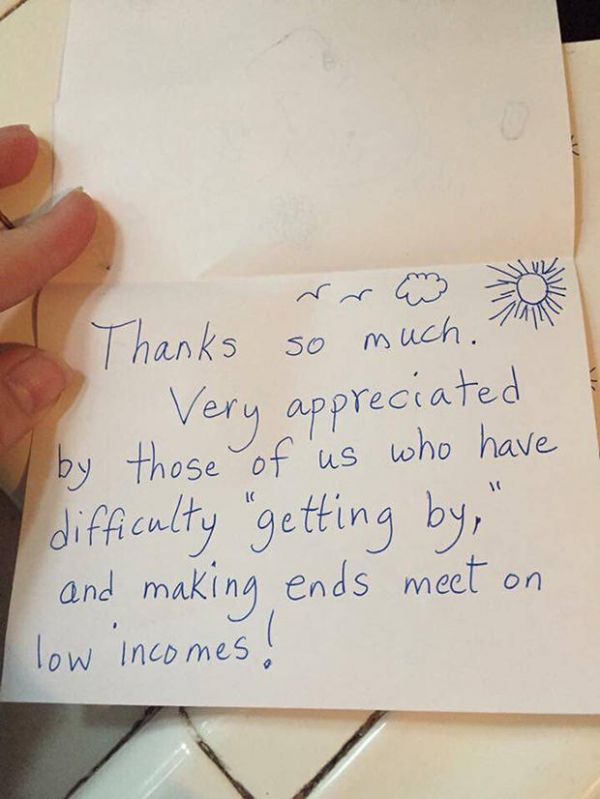 Thanks so much.
Very appreciated
by those of us who have
difficulty "getting by,"
and making ends meet on
low incomes!